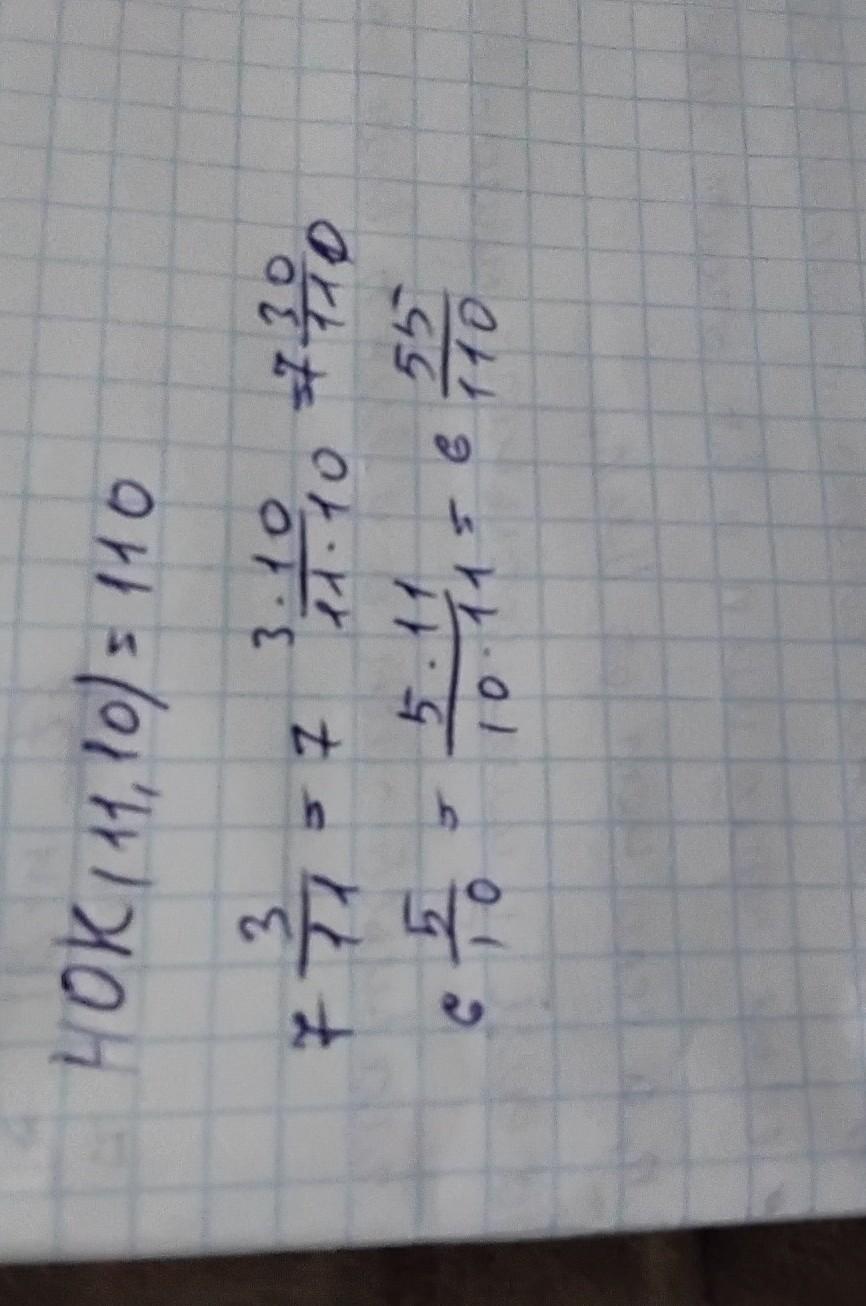 НОК(11,10)=110
7 3/11 = 7 3·10/11·10 =7 30/110
6 5/10 = 5·11/10·11 = 6 55/110